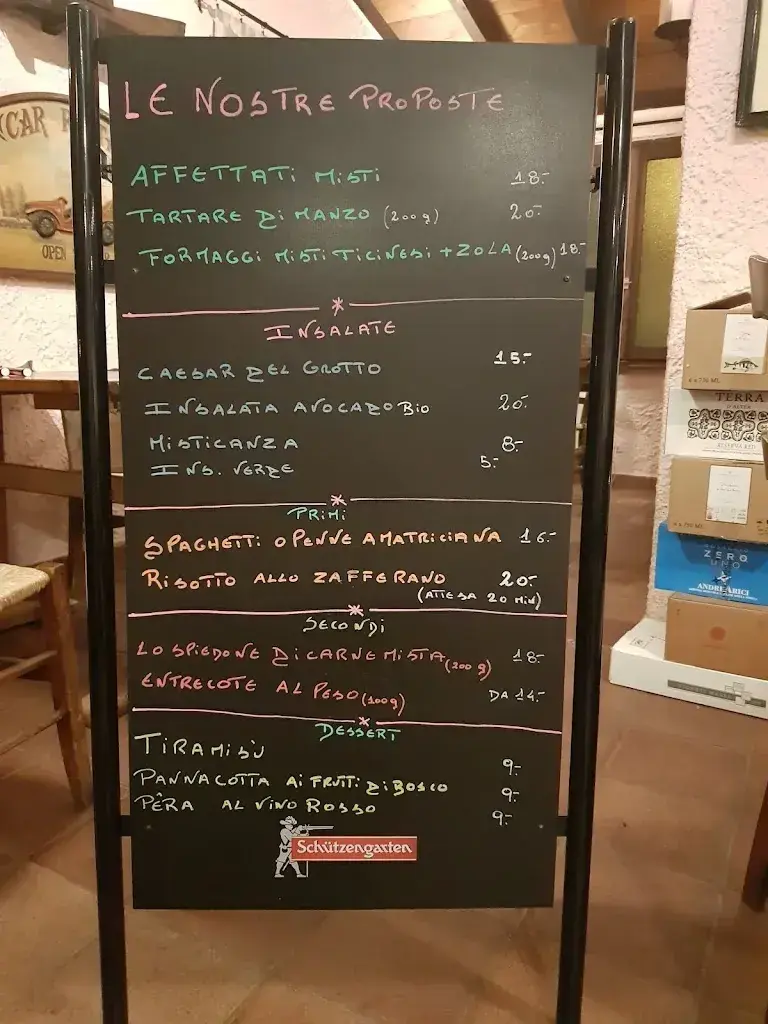 LE NOSTRE PROPOSTE
AFFETTATI MISTI 18.-
TARTARE DI MANZO (200g) 20.-
FORMAGGI MISTI TICINESI + ZOLA (200g) 18.-
INSALATE
CAESAR DEL GROTTO 15.-
INSALATA AVOCADO BIO 20.-
MISTICANZA 8.-
INS. VERDE 5.-
PRIMI
SPAGHETTI O PENNE AMATRICIANA 16.-
RISOTTO ALLO ZAFFERANO 20.-
(ATTESA 20 MIN)
SECONDI
LO SPIEDONE DI CARNE MISTA (200 g) 18.-
ENTRECOTE AL PESO (100g) DA 14.-
DESSERT
TIRAMISÙ 9.-
PANNACOTTA AI FRUTTI DI BOSCO 9.-
PÊRA AL VINO ROSSO 9.-
Schützengarten
CAR
OPEN
TERRA
RISERVA RED
ZERO
UNO
ANDREA ARICI